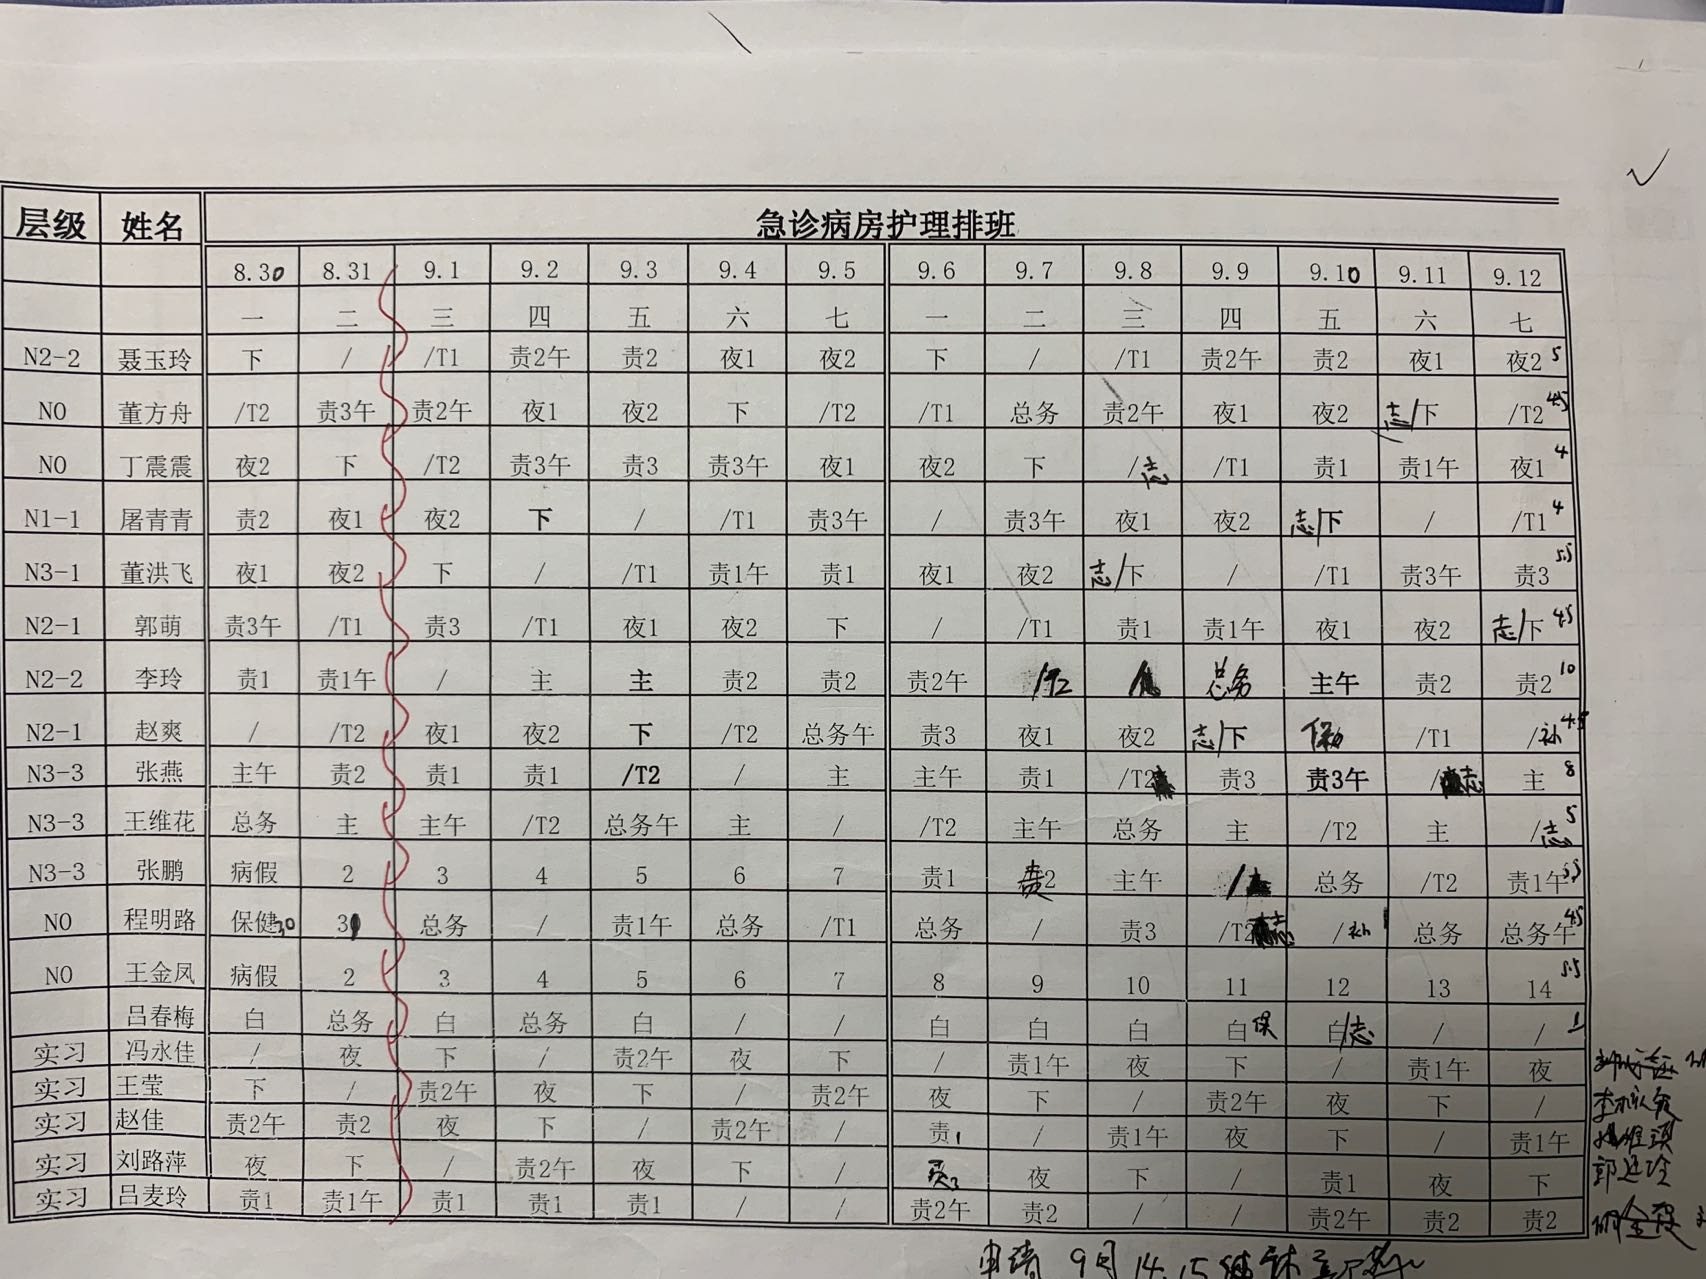 层级 姓名 急诊病房护理排班
8.30 8.31 9.1 9.2 9.3 9.4 9.5 9.6 9.7 9.8 9.9 9.10 9.11 9.12
一 二 三 四 五 六 七 一 二 三 四 五 六 七
N2-2 聂玉玲 下 / /T1 责2午 责2 夜1 夜2 下 / /T1 责2午 责2 夜1 夜2 5
N0 董方舟 /T2 责3午 责2午 夜1 夜2 下 /T2 /T1 总务 责2午 夜1 夜2 志/下 /T2 4.5
N0 丁震震 夜2 下 /T2 责3午 责3 责3午 夜1 夜2 下 /志 /T1 责1 责1午 夜1 4
N1-1 屠青青 责2 夜1 夜2 下 / /T1 责3午 / 责3午 夜1 夜2 志/下 / /T1 4
N3-1 董洪飞 夜1 夜2 下 / /T1 责1午 责1 夜1 夜2 志/下 / /T1 责3午 责3 5.5
N2-1 郭萌 责3午 /T1 责3 /T1 夜1 夜2 下 / /T1 责1 责1午 夜1 夜2 志/下 4.5
N2-2 李玲 责1 责1午 / 主 主 责2 责2 责2午 /T2 / 总务 主午 责2 责2 10
N2-1 赵爽 / /T2 夜1 夜2 下 /T2 总务午 责3 夜1 夜2 志/下 /T1 /补 4.5
N3-3 张燕 主午 责2 责1 责1 /T2 / 主 主午 责1 /T2 责3 责3午 /志 主 8
N3-3 王维花 总务 主 主午 /T2 总务午 主 / /T2 主午 总务 主 /T2 主 /志 5
N3-3 张鹏 病假 2 3 4 5 6 7 责1 责2 主午 / 总务 /T2 责1午 5.5
N0 程明路 保健30 31 总务 / 责1午 总务 /T1 总务 / 责3 /T2志 /补 总务 总务午 4.5
N0 王金凤 病假 2 3 4 5 6 7 8 9 10 11 12 13 14 5.5
吕春梅 白 总务 白 总务 白 / / 白 白 白 白保 白/志 / / 1
实习 冯永佳 / 夜 下 / 责2午 夜 下 / 责1午 夜 下 / 责1午 夜
实习 王莹 下 / 责2午 夜 下 / 责2午 夜 下 / 责2午 夜 下 /
实习 赵佳 责2午 责2 夜 下 / 责2午 / 责1 / 责1午 夜 下 / 责1午
实习 刘路萍 夜 下 / 责2午 夜 下 / 责3 夜 下 / 责1 夜 下
实习 吕麦玲 责1 责1午 责1 责1 责1 / / 责2午 责2 / / 责2午 责2 责2
申请 9月14.15